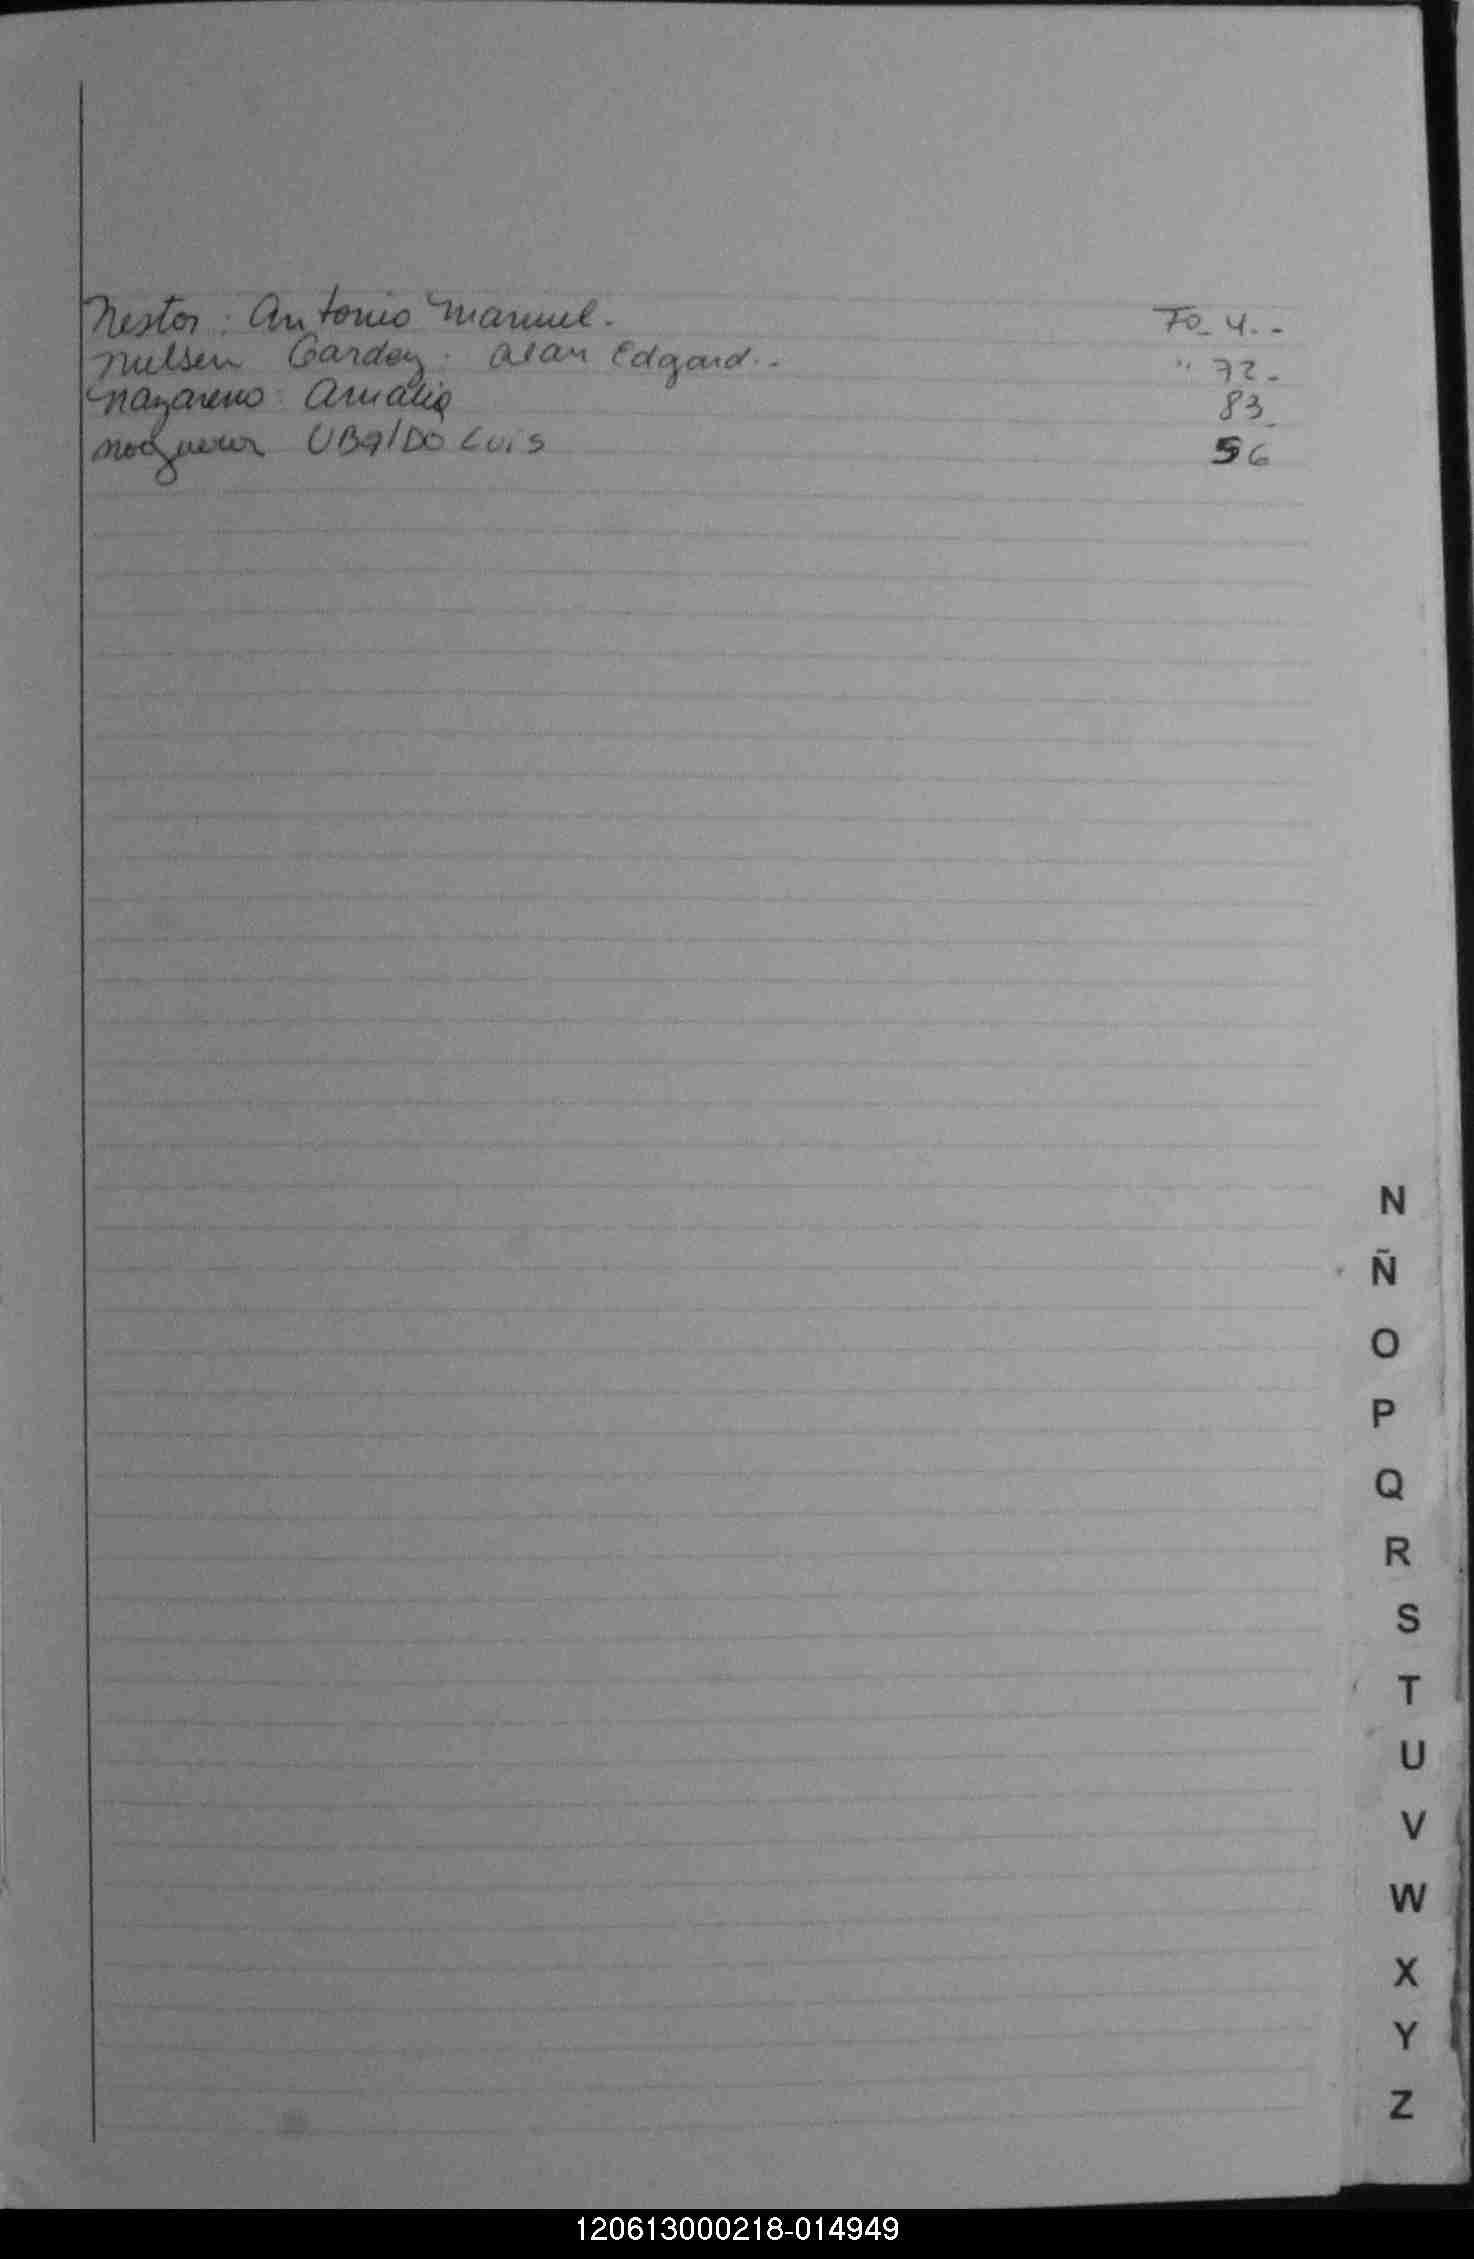 Nestor: Antonio Manuel. Fo_ 4.-
Nielsen Gardey. Alan Edgard.- " 72_
Nazareno: Amalia 83_
Noguera UBaLDO Luis 56
N
Ñ
O
P
Q
R
S
T
U
V
W
X
Y
Z
120613000218-014949